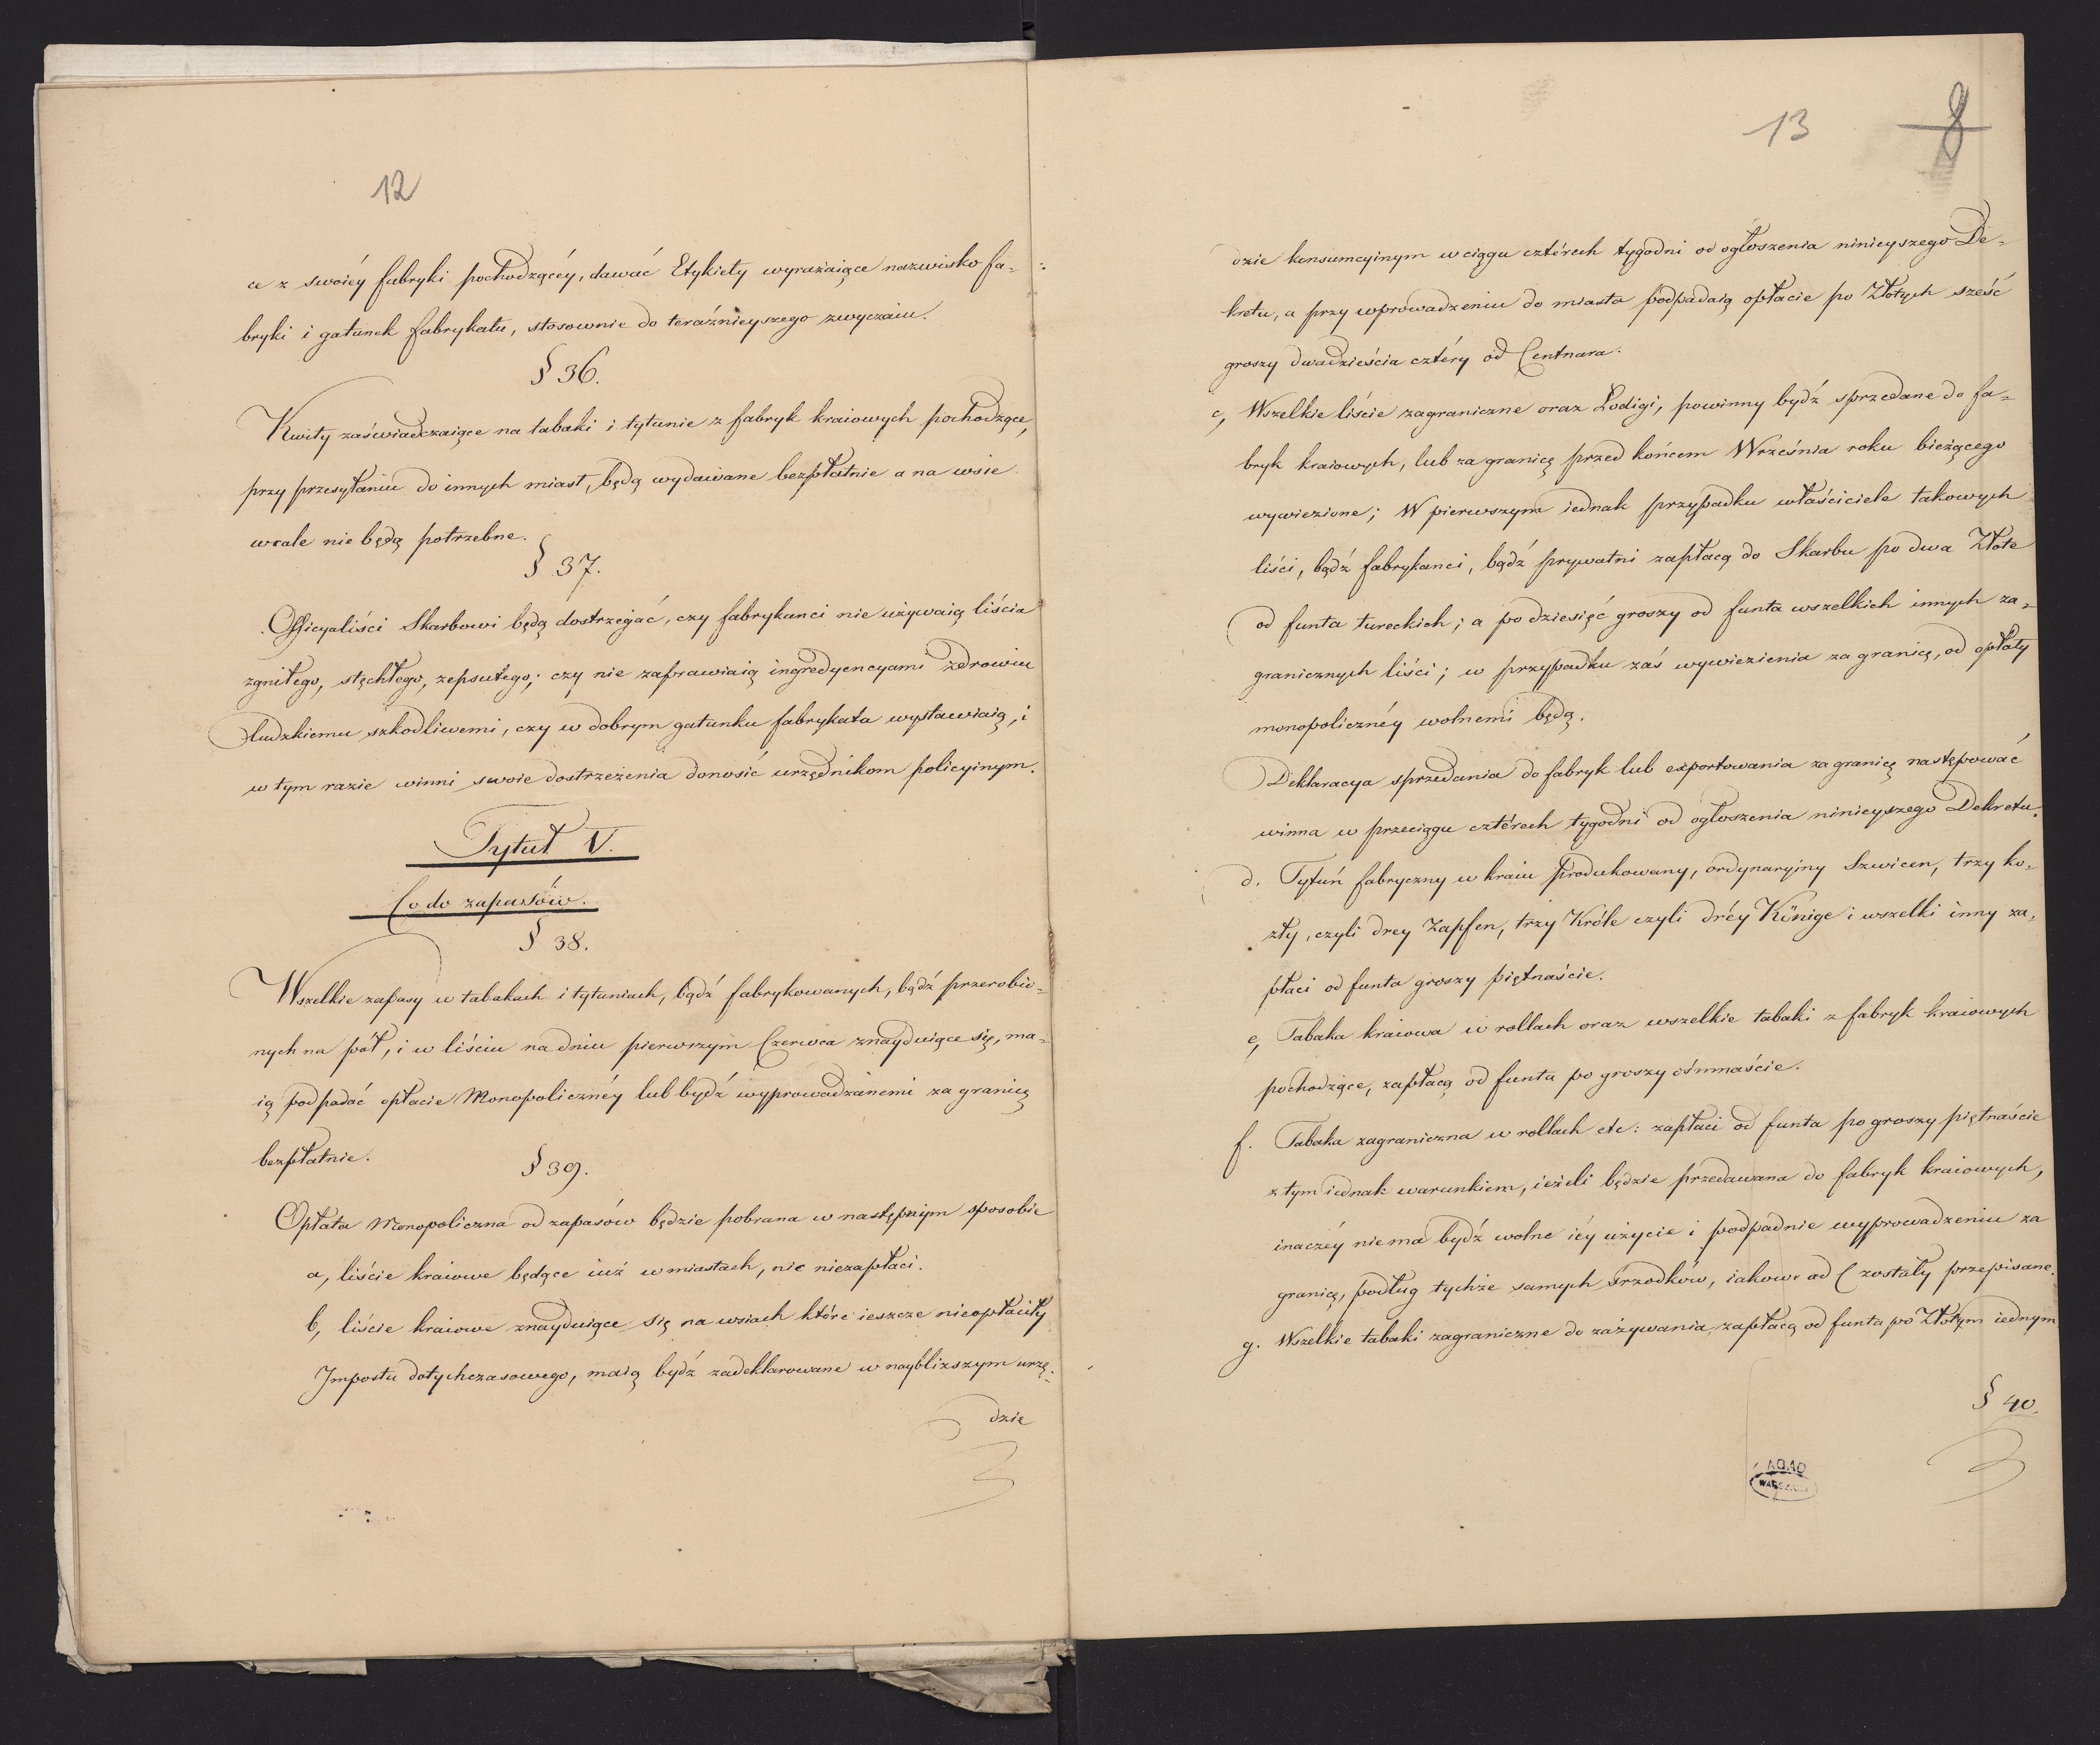 12
ce z swoiéy fabryki pochodzącéy, dawać Etykiety wyrażaiące nazwisko fa-
bryki i gatunek fabrykatu, stosownie do teraźnieyszego zwyczaiu.
§ 36.
Kwity zaświadczaiące na tabaki i tytunie z fabryk kraiowych pochodzące,
przy przesyłaniu do innych miast, będą wydawane bezpłatnie a na wsie
wcale nie będą potrzebne.
§ 37.
Officyaliści Skarbowi będą dostrzegać, czy fabrykanci nie używaią liścia
zgniłego, stęchłego, zepsutego; czy nie zaprawiaią ingredyencyami zdrowiu
ludzkiemu szkodliwemi, czy w dobrym gatunku fabrykata wystawiaią, i
w tym razie winni swoie dostrzeżenia donosić urzędnikom policyinym.
Tytuł V.
Co do zapasów.
§ 38.
Wszelkie zapasy w tabakach i tytuniach, bądź fabrykowanych, bądź przerobio-
nych na pół, i w liściu na dniu pierwszym Czerwca znayduiące się, ma-
ią podpadać opłacie Monopolicznéy lub bydź wyprowadzanemi za granicę
bezpłatnie.
§ 39.
Opłata Monopoliczna od zapasów będzie pobrana w następnym sposobie
a, liście kraiowe będące iuż w miastach, nic niezapłaci.
b, liście kraiowe znayduiące się na wsiach które ieszcze nieopłaciły
Impostu dotychczasowego, maią bydź zadeklarowane w naybliższym urzę-
dzie
13 8
dzie konsumcyinym w ciągu cztérech tygodni od ogłoszenia ninieyszego De-
kretu, a przy wprowadzeniu do miasta podpadaią opłacie po Złotych sześć
groszy dwadzieścia cztéry od Centnara.
c, Wszelkie liście zagraniczne oraz Lodigi, powinny bydź sprzedane do fa-
bryk kraiowych, lub za granicę przed końcem Września roku bieżącego
wywiezione; W pierwszym iednak przypadku właściciele takowych
liści, bądź fabrykanci, bądź prywatni zapłacą do Skarbu po dwa Złote
od funta tureckich; a po dziesięć groszy od funta wszelkich innych za-
granicznych liści; w przypadku zaś wywiezienia za granicę, od opłaty
monopolicznéy wolnemi będą.
Deklaracya sprzedania do fabryk lub exportowania za granicę następować
winna w przeciągu cztérech tygodni od ogłoszenia ninieyszego Dekretu.
d. Tytuń fabryczny w kraiu produkowany, ordynaryiny Szwicen, trzy ko-
zły, czyli drey Zapfen, trzy Króle czyli dréy Könige i wszelki inny za-
płaci od funta groszy piętnaście.
e, Tabaka kraiowa w rollach oraz wszelkie tabaki z fabryk kraiowych
pochodzące, zapłacą od funta po groszy ośmnaście.
f. Tabaka zagraniczna w rollach etc: zapłaci od funta po groszy piętnaście
z tym iednak warunkiem, ieżeli będzie przedawana do fabryk kraiowych,
inaczéy nie ma bydź wolne iéy użycie i podpadnie wyprowadzeniu za
granicę, podług tychże samych śrzodków, iakowe ad C zostały przepisane.
g. Wszelkie tabaki zagraniczne do zażywania, zapłacą od funta po Złotym iednym
§ 40.
AGAD
WARSZAWA